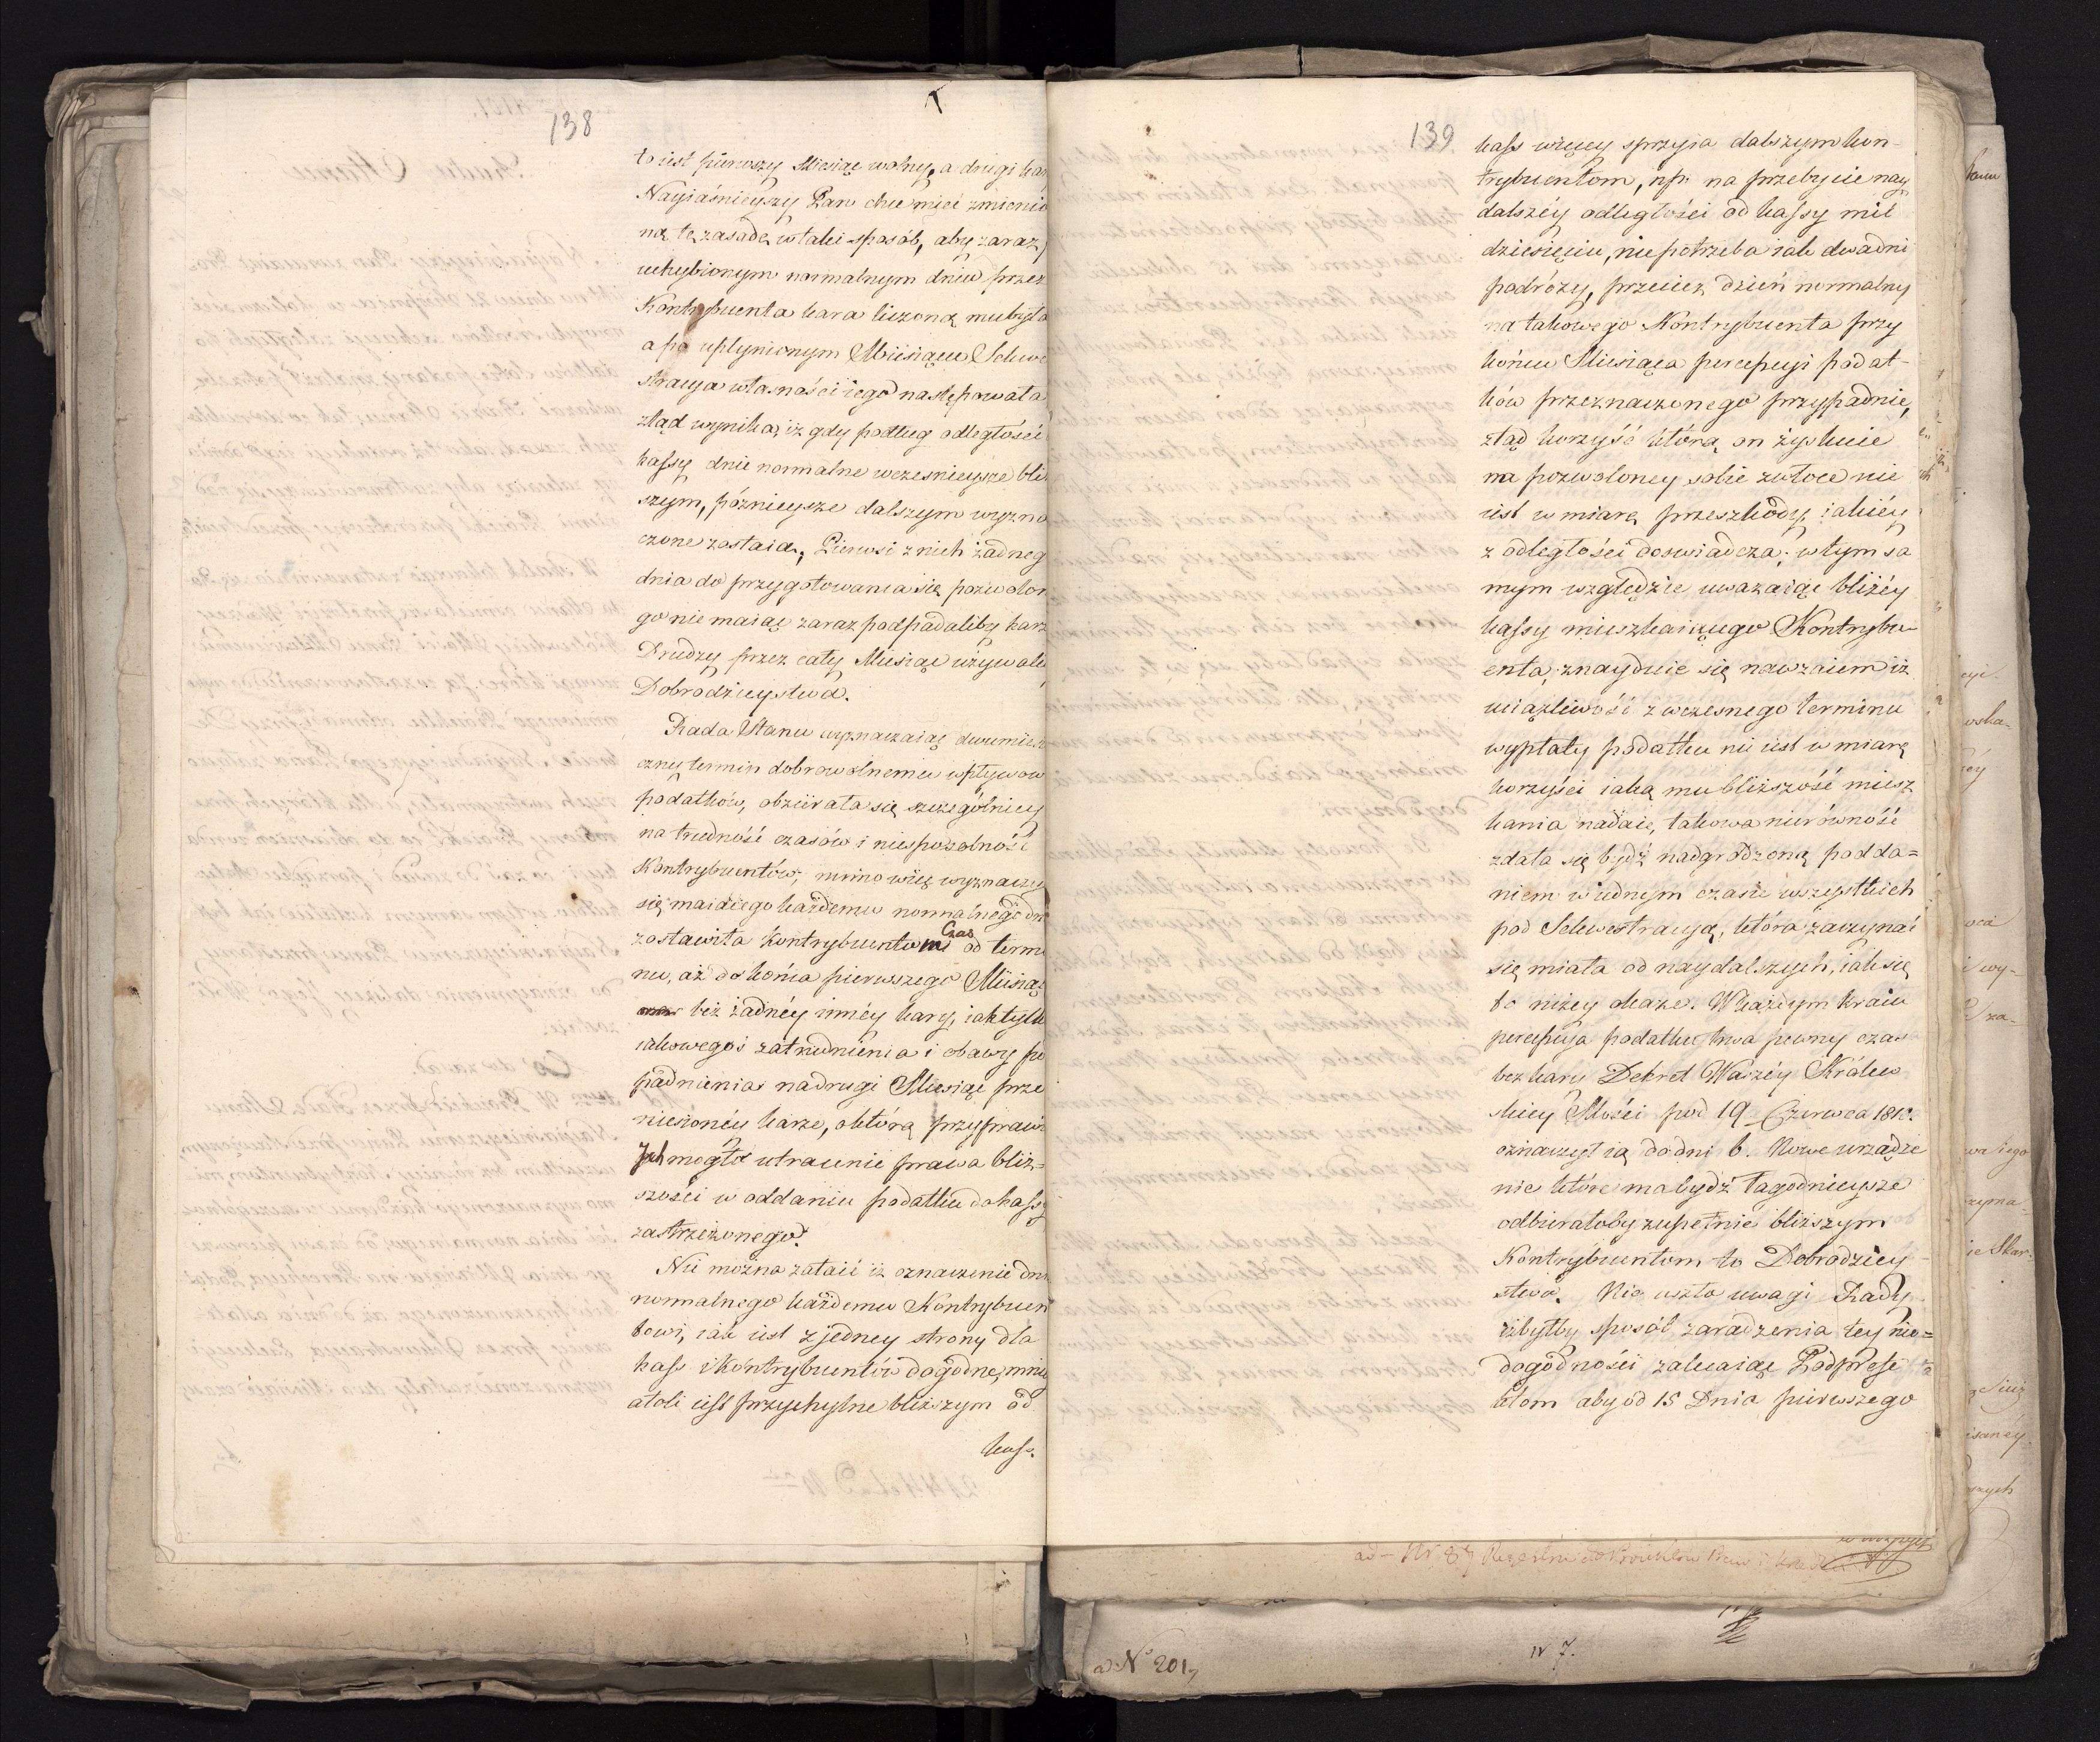 138
to iest pierwszy Miesiąc wolny, a drugi kar
Nayiaśnieyszy Pan chce mieć zmienio
ną tę zasadę w taki sposób, aby zaraz
uchybionym normalnym dniu przez
Kontrybuenta kara liczoną mu była
a po upłynionym Miesiącu Sekwe
stracya własności iego następowała
ztąd wynika, iż gdy podług odległości
kassy dnie normalne wcześnieysze bli
szym, późnieysze dalszym wyzna
czone zostaią, Pierwsi z nich żadneg
dnia do przygotowania się pozwolon
go nie maiąc zaraz podpadaliby karz
Drudzy przez cały Miesiąc używali
Dobrodzieystwa.
Rada Stanu wyznaczaiąc dwumie
czny termin dobrowolnemu wpływow
podatków, obzierała się szczególniey
na trudność czasów i niesposobność
Kontrybuentów, mimo więc wyznaczy
się maiącego każdemu normalnego dn
zostawiła Kontrybuentom Czas od termi
nu, aż do końca pierwszego Miesiąc
bez żadnéy innéy kary, iak tylk
iakowegoś zatrudnienia i obawy po
padnienia nadrugi Miesiąc prze
niesionéy karze, o którą przyprawi
Ich mogło utracenie prawa bliz=
szości w oddaniu podatku do kassy
zastrzeżonego.
Nie można zataić iż oznaczenie dni
normalnego każdemu Kontrybuen
towi, iak iest z jedney strony dla
kass i Kontrybuentów dogodne, mniey
atoli iest przychylne bliższym od
kass.
139
kass więcey sprzyia dalszym kon-
trybuentom, np: na przebycie nay
dalszéy odległości od kassy mil
dziesięciu, nie potrzeba iak dwa dni
podróży, przecież dzień normalny
na takowego Kontrybuenta przy
końcu Miesiąca percepcyi podat-
ków przeznaczonego przypadnie,
ztąd korzyść którą on zyskuie
na pozwoloney sobie zwłoce nie
iest w miarę przeszkody, iakiéy
z odległości doswiadcza; w tym sa
mym względzie uważaiąc bliżéy
kassy mieszkaiącego Kontrybu-
enta, znayduie się nawzaiem iż
uciążliwość z wczesnego terminu
wypłaty podatku nie iest w miarę
korzyści iaką mu bliższość miesz
kania nadaie, takowa nierówność
zdała się bydź nadgrodzoną podda=
niem w iednym czasie wszystkich
pod Sekwestracyą, która zaczynać
się miała od naydalszych, iak się
to niżey okaże. W każdym kraiu
percepcya podatku trwa pewny czas
bez kary Dekret Waszéy Królew
skiey Mości pod 19 Czerwca 1810.
oznaczył ią do dni 6. Nowe urządze
nie które ma bydź łagodnieysze
odbierałoby zupełnie bliższym
Kontrybuentom to Dobrodziey
stwo. Nie uszło uwagi Rady
iżbyłby sposób zaradzenia tey nie=
dogodności zalecaiąc Podprefe
ktom aby od 15 Dnia pierwszego
a) N° 201,
N 7.